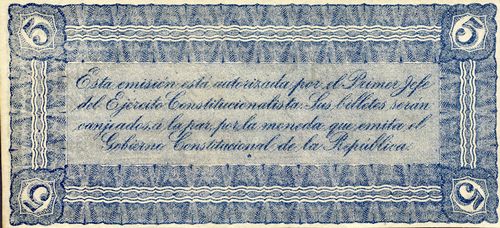 5 5
Esta emisión está autorizada por el Primer Jefe
del Ejército Constitucionalista. Sus billetes serán
canjeados, a la par, por la moneda que emita el
Gobierno Constitucional de la República.
5 5